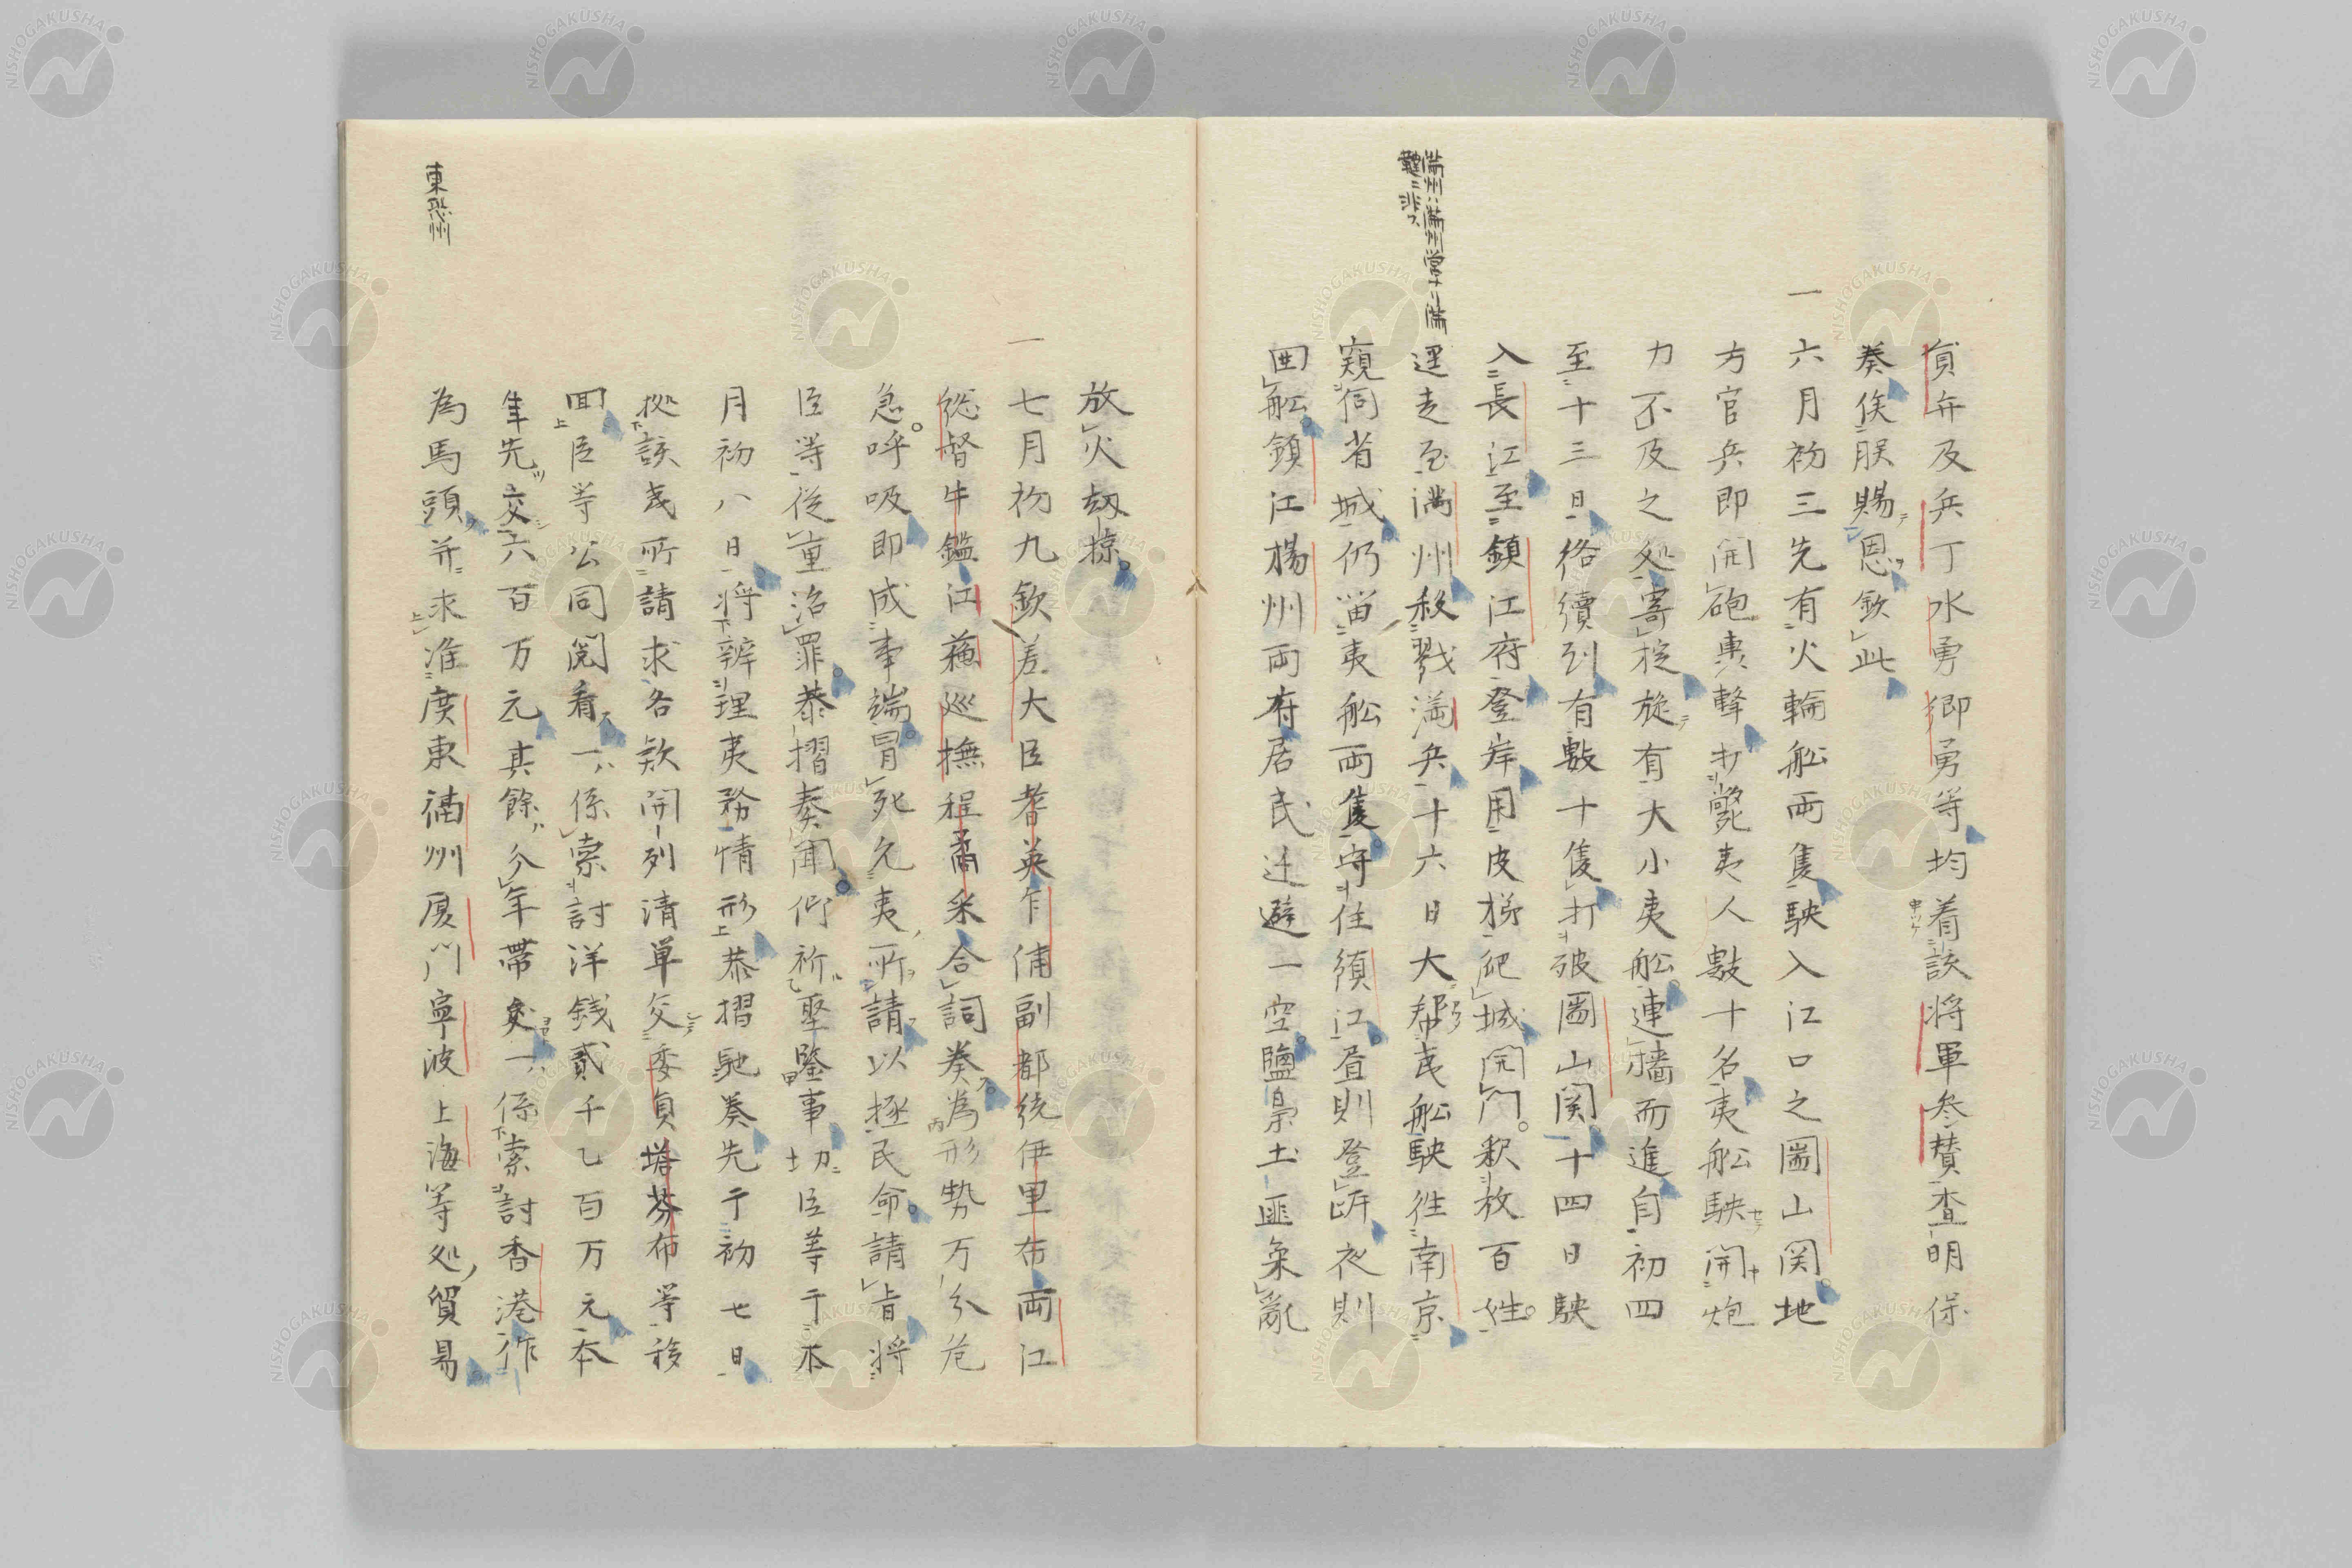 員弁及兵丁水勇郷勇等均着該将軍叅賛査明保
奏俟朕賜恩欽此
一六月初三先有火輪舩両隻駛入江口之圌山関地
方官兵即開砲輿擊打斃夷人數十名夷舩駛開炮
力不及之処寄椗旋有大小夷舩連檣而進自初四
至十三日絡續到有數十隻打破圌山関十四日駛
入長江至鎮江府登岸用皮梯爬城開門釈放百姓
逕走至満州殺戮満兵十六日大幇夷舩駛往南京
窺伺省城仍畄夷舩両隻守住鎮江昼則登岸夜則
囬舩鎮江楊州両府居民迁避一空鹽梟土匪梟乱
満州ハ満州営ナリ満
韃ニ非ス
放火劫掠
一七月初九欽差大臣耆英乍浦副都統伊里布両江
総督牛鑑江蘓巡撫程矞采合詞奏為形勢万分危
急呼吸即成事端冒死允夷所請以拯民命請旨将
臣等従重治罪恭摺奏聞仰祈聖鑒事切臣等于本
月初八日将辨理夷務情形恭摺馳奏先于初七日
拠該夷所請求各欵開列清単交委員塔芬布等移
囬臣等公同閲看一係索討洋銭貳千乙百万元本
年先交六百万元其餘分年帯交一係索討香港作
為馬頭并求准廣東福州厦門寧波上海等処貿易
東恐州
NISHOGAKUSHA